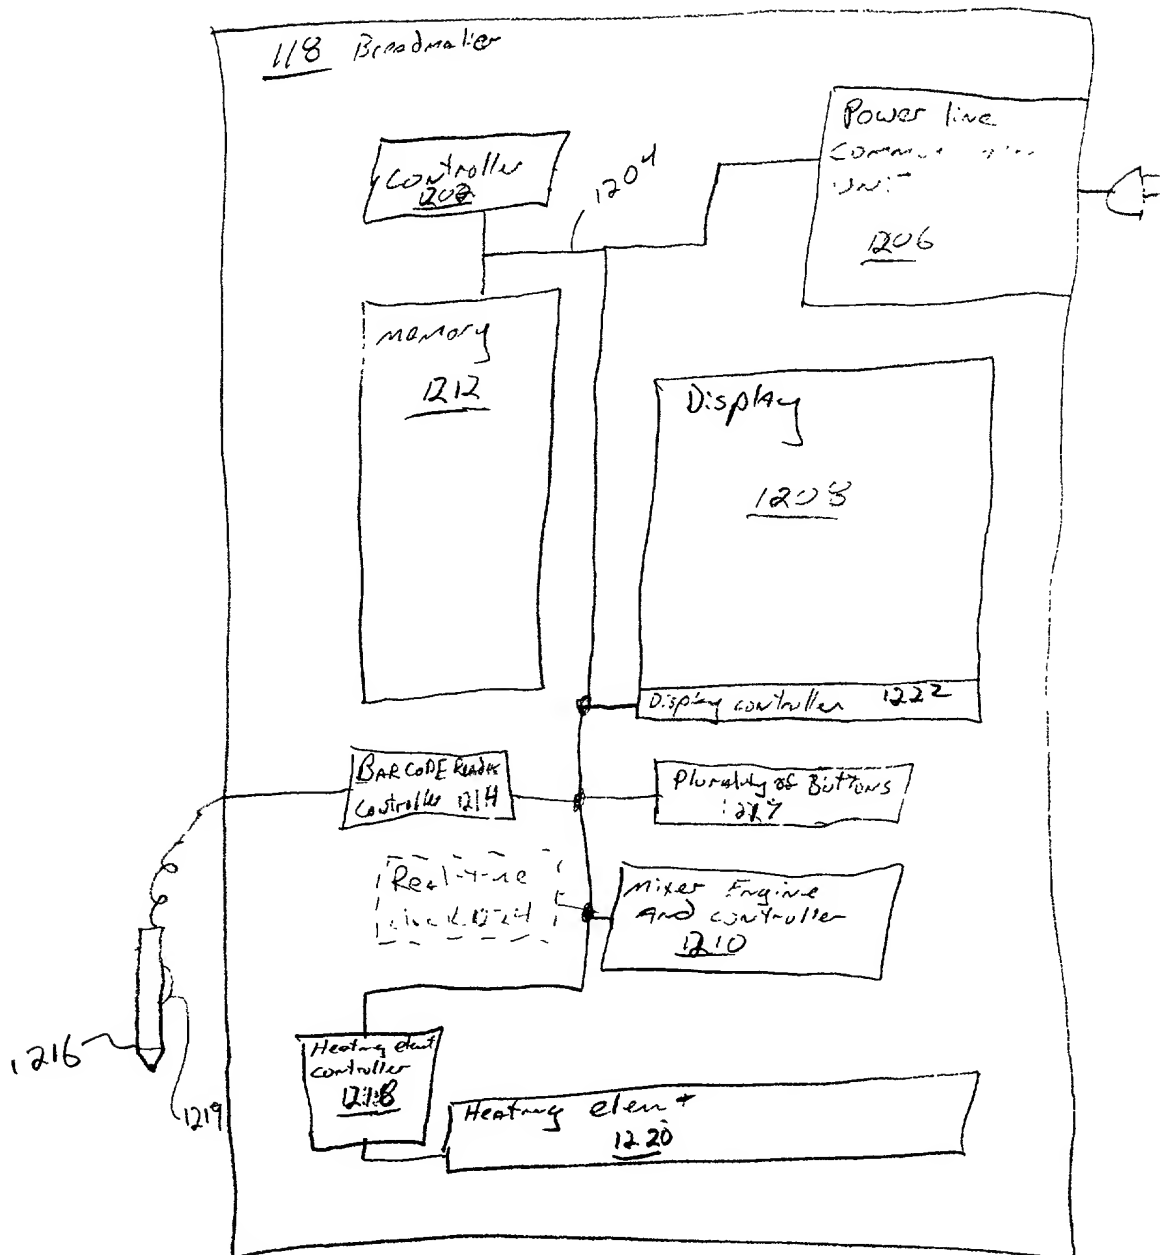 118 Breadmaker
Power line
UNIT
1206
Controller
1202
1204
Memory
1212
Display
1208
Display controller 1222
BARCODE Reader
Controller 1214
Plurality of Buttons
Real-time
clock 1224
Mixer Engine
And controller
1210
1216
1219
Heating elemt
controller
1218
Heating elemt
1220